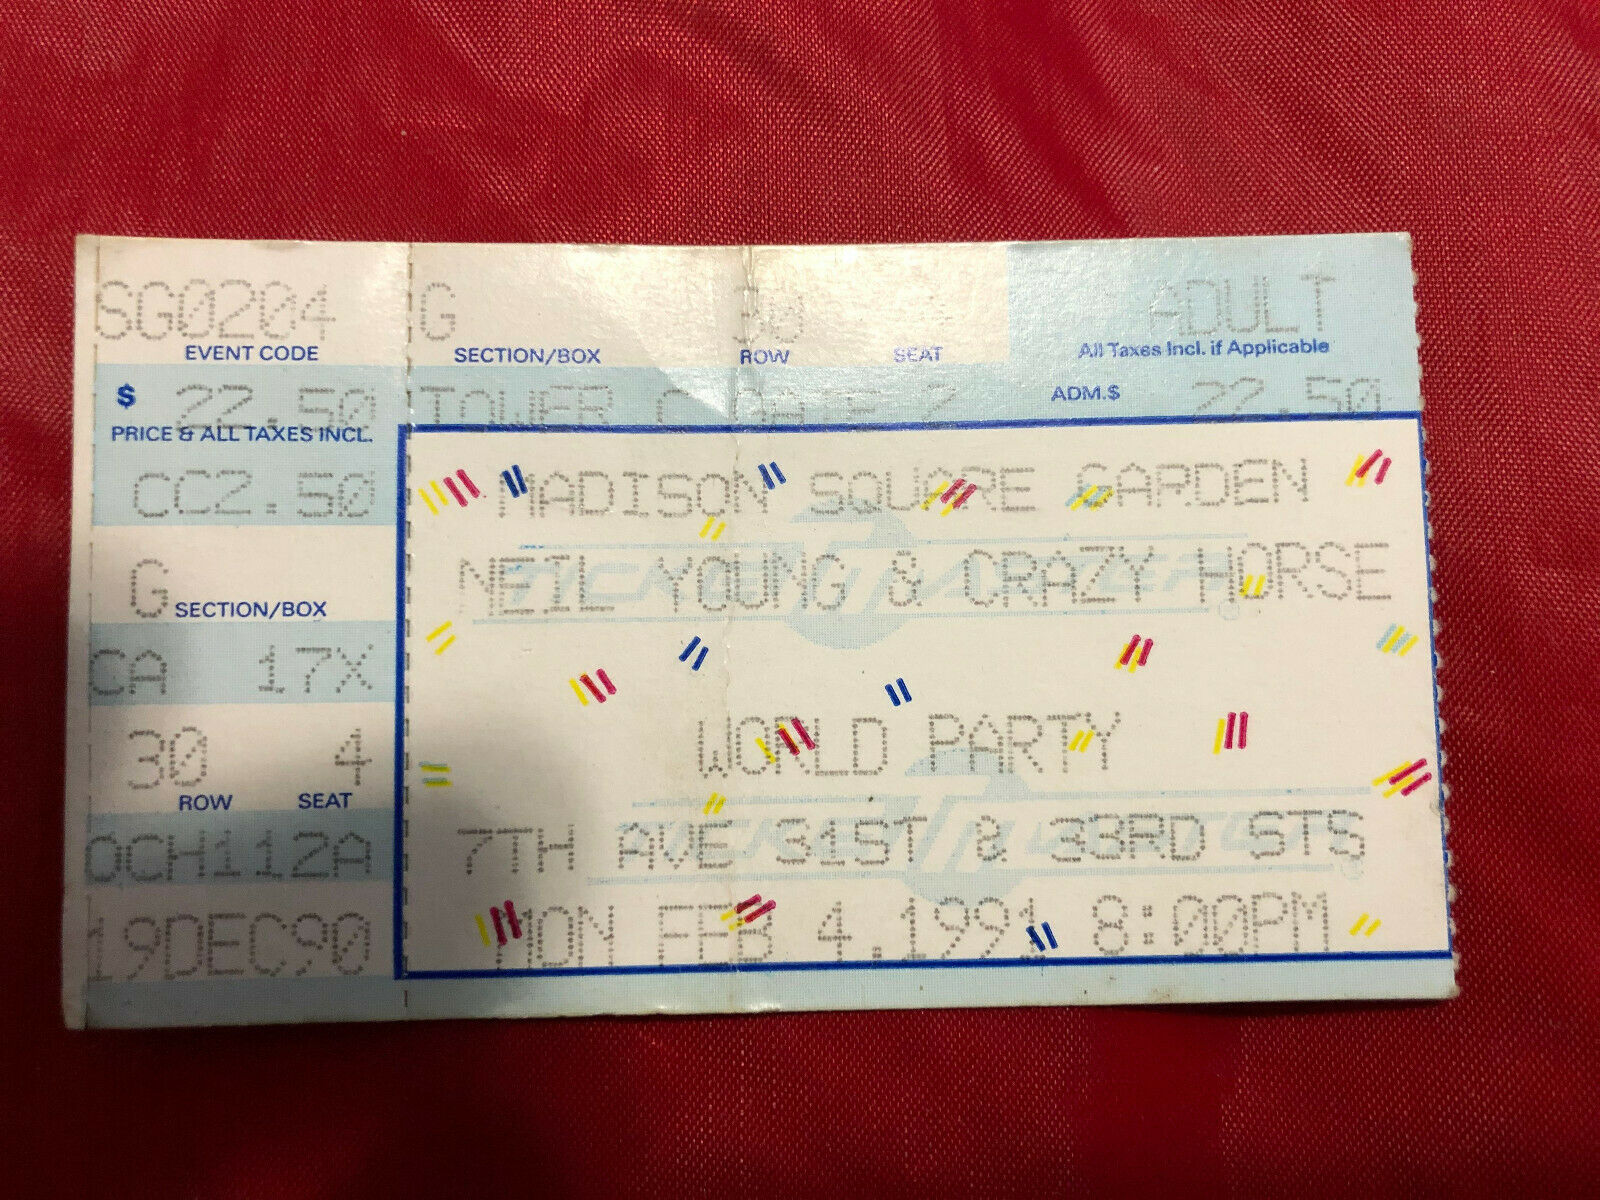 SG0204 G 30 ADULT
EVENT CODE SECTION/BOX ROW SEAT All Taxes Incl. if Applicable
$ 22.50 TOWER C GATE 2 ADM.$ 22.50
PRICE & ALL TAXES INCL.
CC2.50 MADISON SQUARE GARDEN
G NEIL YOUNG & CRAZY HORSE
SECTION/BOX
CA 17X
30 4 WORLD PARTY
ROW SEAT
OCH112A 7TH AVE 31ST & 33RD STS
19DEC90 MON FEB 4,1991 8:00PM